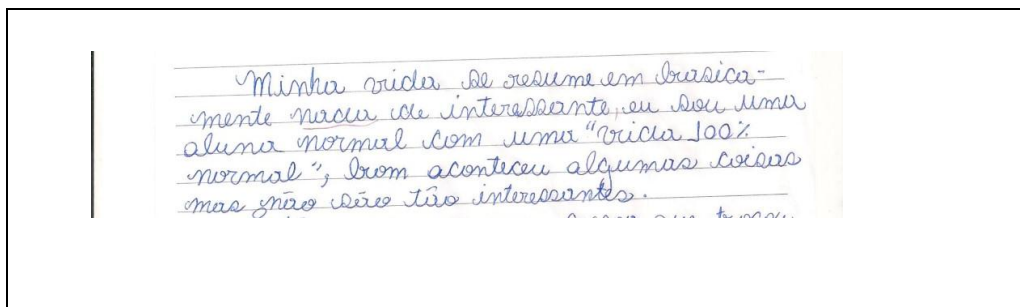 Minha vida se resume em basica-
mente nada de interessante, eu sou uma
aluna normal com uma "vida 100%
normal", bom aconteceu algumas coisas
mas não são tão interessantes.